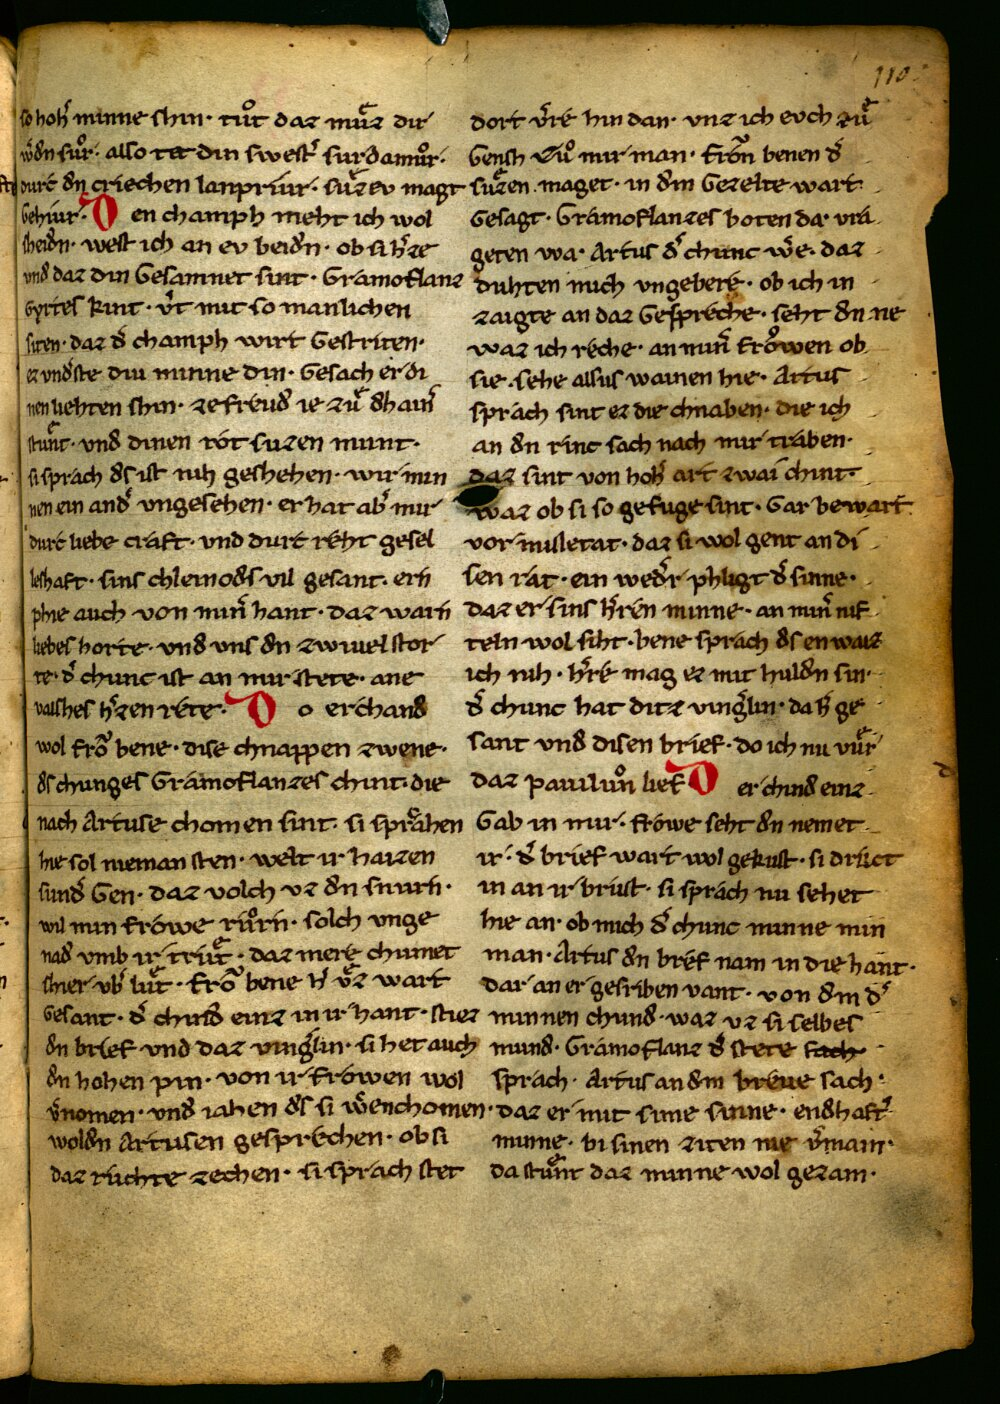 110
so hoh͛ minne shin · tuͦt daz muͤz dir
w͛dn suͦr · also tet din swest͛ surdamuͦr ·
durc dn criechen lanpriur · suͤzev magt
gehiur · D en champh meht ich wol
sheidn · west ich an ev beidn · ob si h͛ze
vnd daz din gesamnet sint · Gramoflanz
Gyrtes kint · v͛t mit so manlichen
siten · daz d͛ champh wirt gestriten ·
ez vndste div minne din · Gesach er di
nen liehten shin · ze freud ie zuͤ dhain͛
stuͤnt · vnd dinen rot suzen munt ·
si sprach ds ist nih geshehen · wir min
nen ein and͛ vngesehen · er hat ab͛ mir
durc liebe craft · vnd durc reht gesel
leshaft · sins chleinods vil gesant · en
phie auch von min͛ hant · daz warn
liebes horte · vnd vns dn zwiuel stor
te · d͛ chunc ist an mir stete · ane
valshes h͛zen rete · D o erchand
wol froͮ bene · dise chnappen zwene ·
ds chunges Gramoflanzes chint · die
nach Artuse chomen sint · si sprahen
hie sol nieman sten · welt ir haizen
sund͛ Gen · daz volch vz dn snurn ·
wil min frowe ruͦrn · solch vnge
nad vmb ir truͤt · daz mere chumet
shier vb͛ luͤt · froͮ bene h͛ vͤz wart
gesant · d͛ chind einz in ir hant · stiez
dn brief vnd daz ving͛lin · si het auch
dn hohen pin · von ir frowen wol
v͛nomen · vnd iahen ds si w͛en chomen ·
woldn Artusen gesprechen · ob si
daz ruchte zechen · si sprach stet
dort v͛re hin dan · vnz ich evch zuͤ
Gensh zuͦ mir man · froͮn benen d͛
suͤzen maget · in dm Gezelte wart
gesagt · Gramoflanzes boten da · vra
geten wa · Artus d͛ chunc w͛e · daz
duhten mich vngebere · ob ich in
zaigte an daz Gespreche · seht dn ne
waz ich reche · an min͛ froͮwen ob
sie · sehe alsus wainen hie · Artus
sprach sint ez die chnaben · die ich
an dn rinc sach nach mir traben ·
daz sint von hoh͛ art zwai chint ·
waz ob si so gefuge sint · Gar bewart
vor misletat · daz si wol gent an di
sen rat · ein wed͛r phligt d͛ sinne ·
daz er sins h͛ren minne · an min͛ nif
teln wol siht · bene sprach ds en waiz
ich nih · h͛re mag ez mit huldn sin ·
d͛ chunc hat ditz ving͛lin · da h͛ ge
sant vnd disen brief · do ich nu vuͤr
daz pauiluͦn lief D er chind einz
Gab in mir · frowe seht dn nemet
ir · d͛ brief wart wol gekust · si druct
in an ir brust · si sprach nu sehet
hie an · ob mich d͛ chunc minne min
man · Artus dn bref nam in die hant ·
dar an er gesriben vant · von dm d͛
minnen chund · waz vz si selbes
mund · Gramoflanz d͛ stete sach
sprach · Artus an dm breue sach ·
daz er mit sime sinne · endhaft͛
minne · bi sinen ziten nie v͛nam ·
da stuͤnt daz minne wol gezam ·